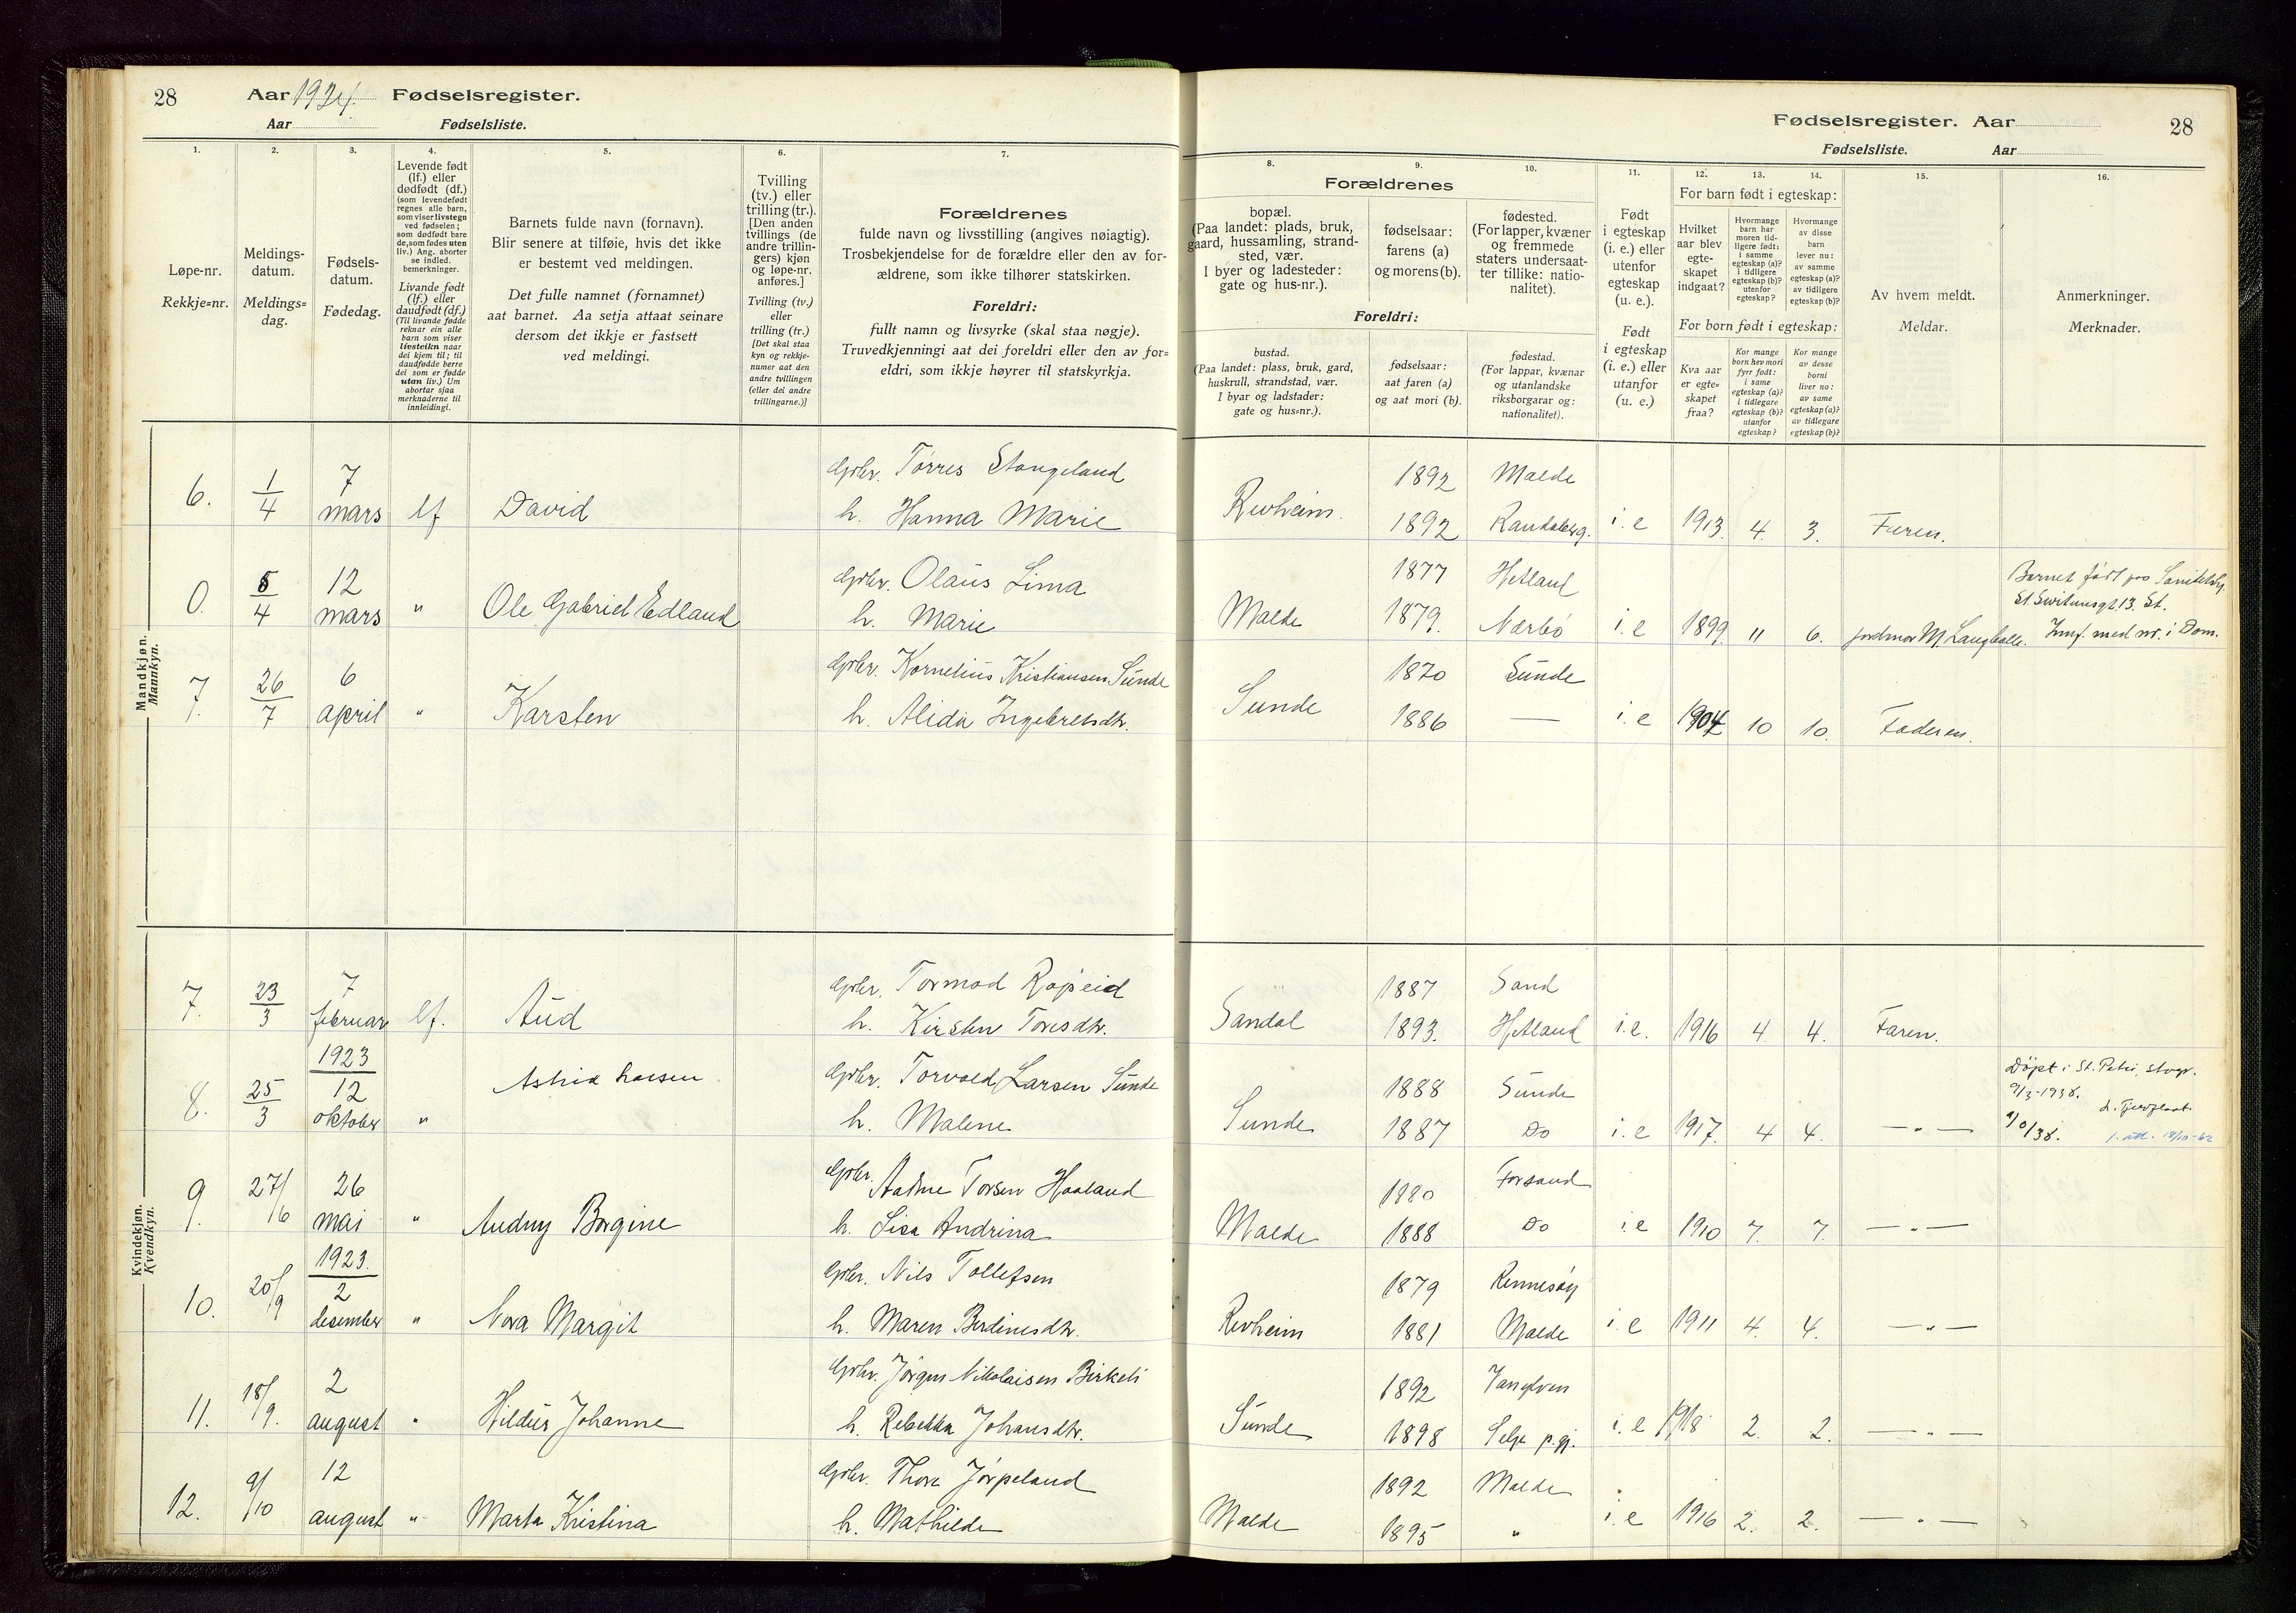 28 Aar 1924. Fødselsregister.
Aar Fødselsliste.
Fødselsregister. Aar 28
Fødselsliste. Aar
1. 2. 3. 4. 5. 6. 7.
Løpe-nr.
Rekkje=nr.
Meldings-
datum.
Meldings=
dag.
Fødsels-
datum.
Fødedag.
Levende født
(lf.) eller
dødfødt (df.)
(som levendefødt
regnes alle barn,
som viser livstegn
ved fødselen;
som dødfødt bare
de, som fødes uten
liv.) Ang. aborter
se indled.
bemerkninger.
Livande født
(lf.) eller
daudfødt (df.)
(Til livande fødde
reknar ein alle
barn som viser
livsteikn naar
dei kjem til; til
daudfødde berre
dei som er fødde
utan liv.) Um
abortar sjaa
merknaderne til
innleidingi.
Barnets fulde navn (fornavn).
Blir senere at tilføie, hvis det ikke
er bestemt ved meldingen.
Det fulle namnet (fornamnet)
aat barnet. Aa setja attaat seinare
dersom det ikkje er fastsett
ved meldingi.
Tvilling
(tv.) eller
trilling (tr.).
[Den anden
tvillings (de
andre trillin-
gers) kjøn
og løpe-nr.
anføres.]
Tvilling (tv.)
eller
trilling (tr.)
[Det skal staa
kyn og rekkje-
numer aat den
andre tvillingen
(eller dei andre
trillingarne.)]
Forældrenes
fulde navn og livsstilling (angives nøiagtig).
Trosbekjendelse for de forældre eller den av for-
ældrene, som ikke tilhører statskirken.
Foreldri:
fullt namn og livsyrke (skal staa nøgje).
Truvedkjenningi aat dei foreldri eller den av for=
eldri, som ikkje høyrer til statskyrkja.
8. 9. 10. 11. 12. 13. 14. 15. 16.
Forældrenes
bopæl.
(Paa landet: plads, bruk,
gaard, hussamling, strand-
sted, vær.
I byer og ladesteder:
gate og hus-nr.).
fødselsaar:
farens (a)
og morens (b).
fødested.
(For lapper, kvæner
og fremmede
staters undersaat-
ter tillike: natio-
nalitet).
Foreldri:
bustad.
(Paa landet: plass, bruk, gard,
huskrull, strandstad, vær.
I byar og ladstader:
gate og hus=nr.).
fødselsaar:
aat faren (a)
og aat mori (b).
fødestad.
(For lappar, kvænar
og utanlandske
riksborgarar og:
nationalitet).
Født
i egteskap
(i. e.) eller
utenfor
egteskap
(u. e.).
Født
i egteskap
(i. e.) eller
utanfor
(u. e.)
For barn født i egteskap:
Hvilket
aar blev
egte-
skapet
indgaat?
Hvormange
barn har
moren tid-
ligere født:
i samme
egteskap (a)?
i tidligere
egteskap (b)?
utenfor
egteskap?
Hvormange
av disse
barn
lever nu:
av samme
egteskap (a)?
av tidligere
egteskap (b)?
For born født i egteskap:
Kva aar
er egte=
skapet
fraa?
Kor mange
born hev mori
fyrr født:
i same
egteskap (a)?
i tidlegare
egteskap (b)?
utanfor
egteskap?
Kor mange
av desse
borni
liver no:
av same
egteskap (a)?
av tidlegare
egteskap (b)?
Av hvem meldt.
Meldar.
Anmerkninger.
Merknader.
Mandkjøn.
Mannkyn.
6. 1/4 7 mars lf David Gbr. Tørres Stangeland
h. Hanna Marie
Revheim. 1892 Malde
1892 Randaberg. i. e 1913. 4. 3. Faren.
0. 5/4 12 mars " Ole Gabriel Edland Gbr. Olaus Lima
h. Marie
Malde 1877 Hetland
1879. Nærbø i. e 1899. 11 6. jordmor M. Langballe.
Barnet født paa
St. Svitunsgt. 13. St.
Innf. med nr. i Dom.
7. 26/7 6 april " Karsten Gbr. Kornelius Kristiansen Sunde
h. Alida Ingebretsdtr.
Sunde 1870 Sunde
1886 — i. e 1904 10 10. Faderen.
Kvindekjøn.
Kvendkyn.
7. 23/3 7 februar lf. Aud Gbr. Tormod Røpeid
h. Kirsten Toresdtr.
Sandal 1887 Sand
1893. Hetland i. e. 1916 4 4. Faren.
8. 25/3 1923 12 oktober " Astrid Larsen Gbr. Torvald Larsen Sunde
h. Malene
Sunde 1888 Sunde
1887 Do i. e 1917. 4 4. — " —
Døpt i St. Petri, Stvgr.
9/3-1938.
9. 27/6 26 mai " Audny Borgine Gbr. Aadne Torsen Haaland
h. Lisa Andrina
Malde 1880 Forsand
1888 Do i. e 1910 7. 7. — " —
10. 20/9 1923. 2 desember " Nora Margit Gbr. Nils Tollefsen
h. Maren Berdinesdtr.
Revheim 1879 Rennesøy
1881 Malde i. e 1911 4. 4. — " —
11. 18/9. 2 august " Hildur Johanne Gbr. Jørgen Nikolaisen Birkeli
h. Rebekka Johansdtr.
Sunde 1892
1898 Selje p.gj. i. e 1918 2. 2. — " —
12. 9/10 12 august " Marta Kristina Gbr. Thore Jørpeland
h. Mathilde
Malde 1892 Malde
1895 " i. e 1916 2. 2. — " —